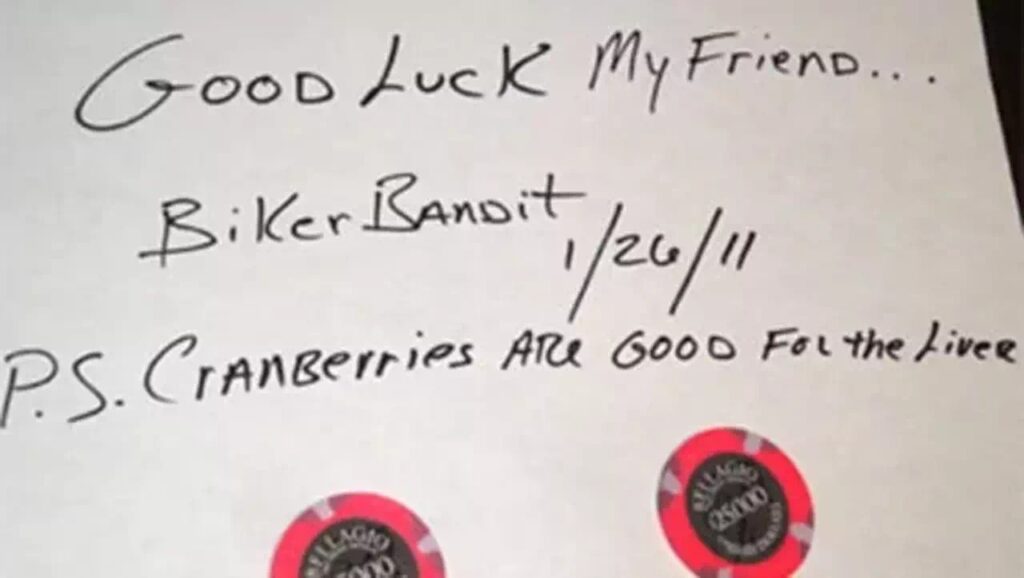 GOOD LUCK My FRiEND...
BiKer BANDit
1/26/11
P.S. CRANBerries ARE GOOD FOR the Liver
BELLAGIO
25000
BELLAGIO